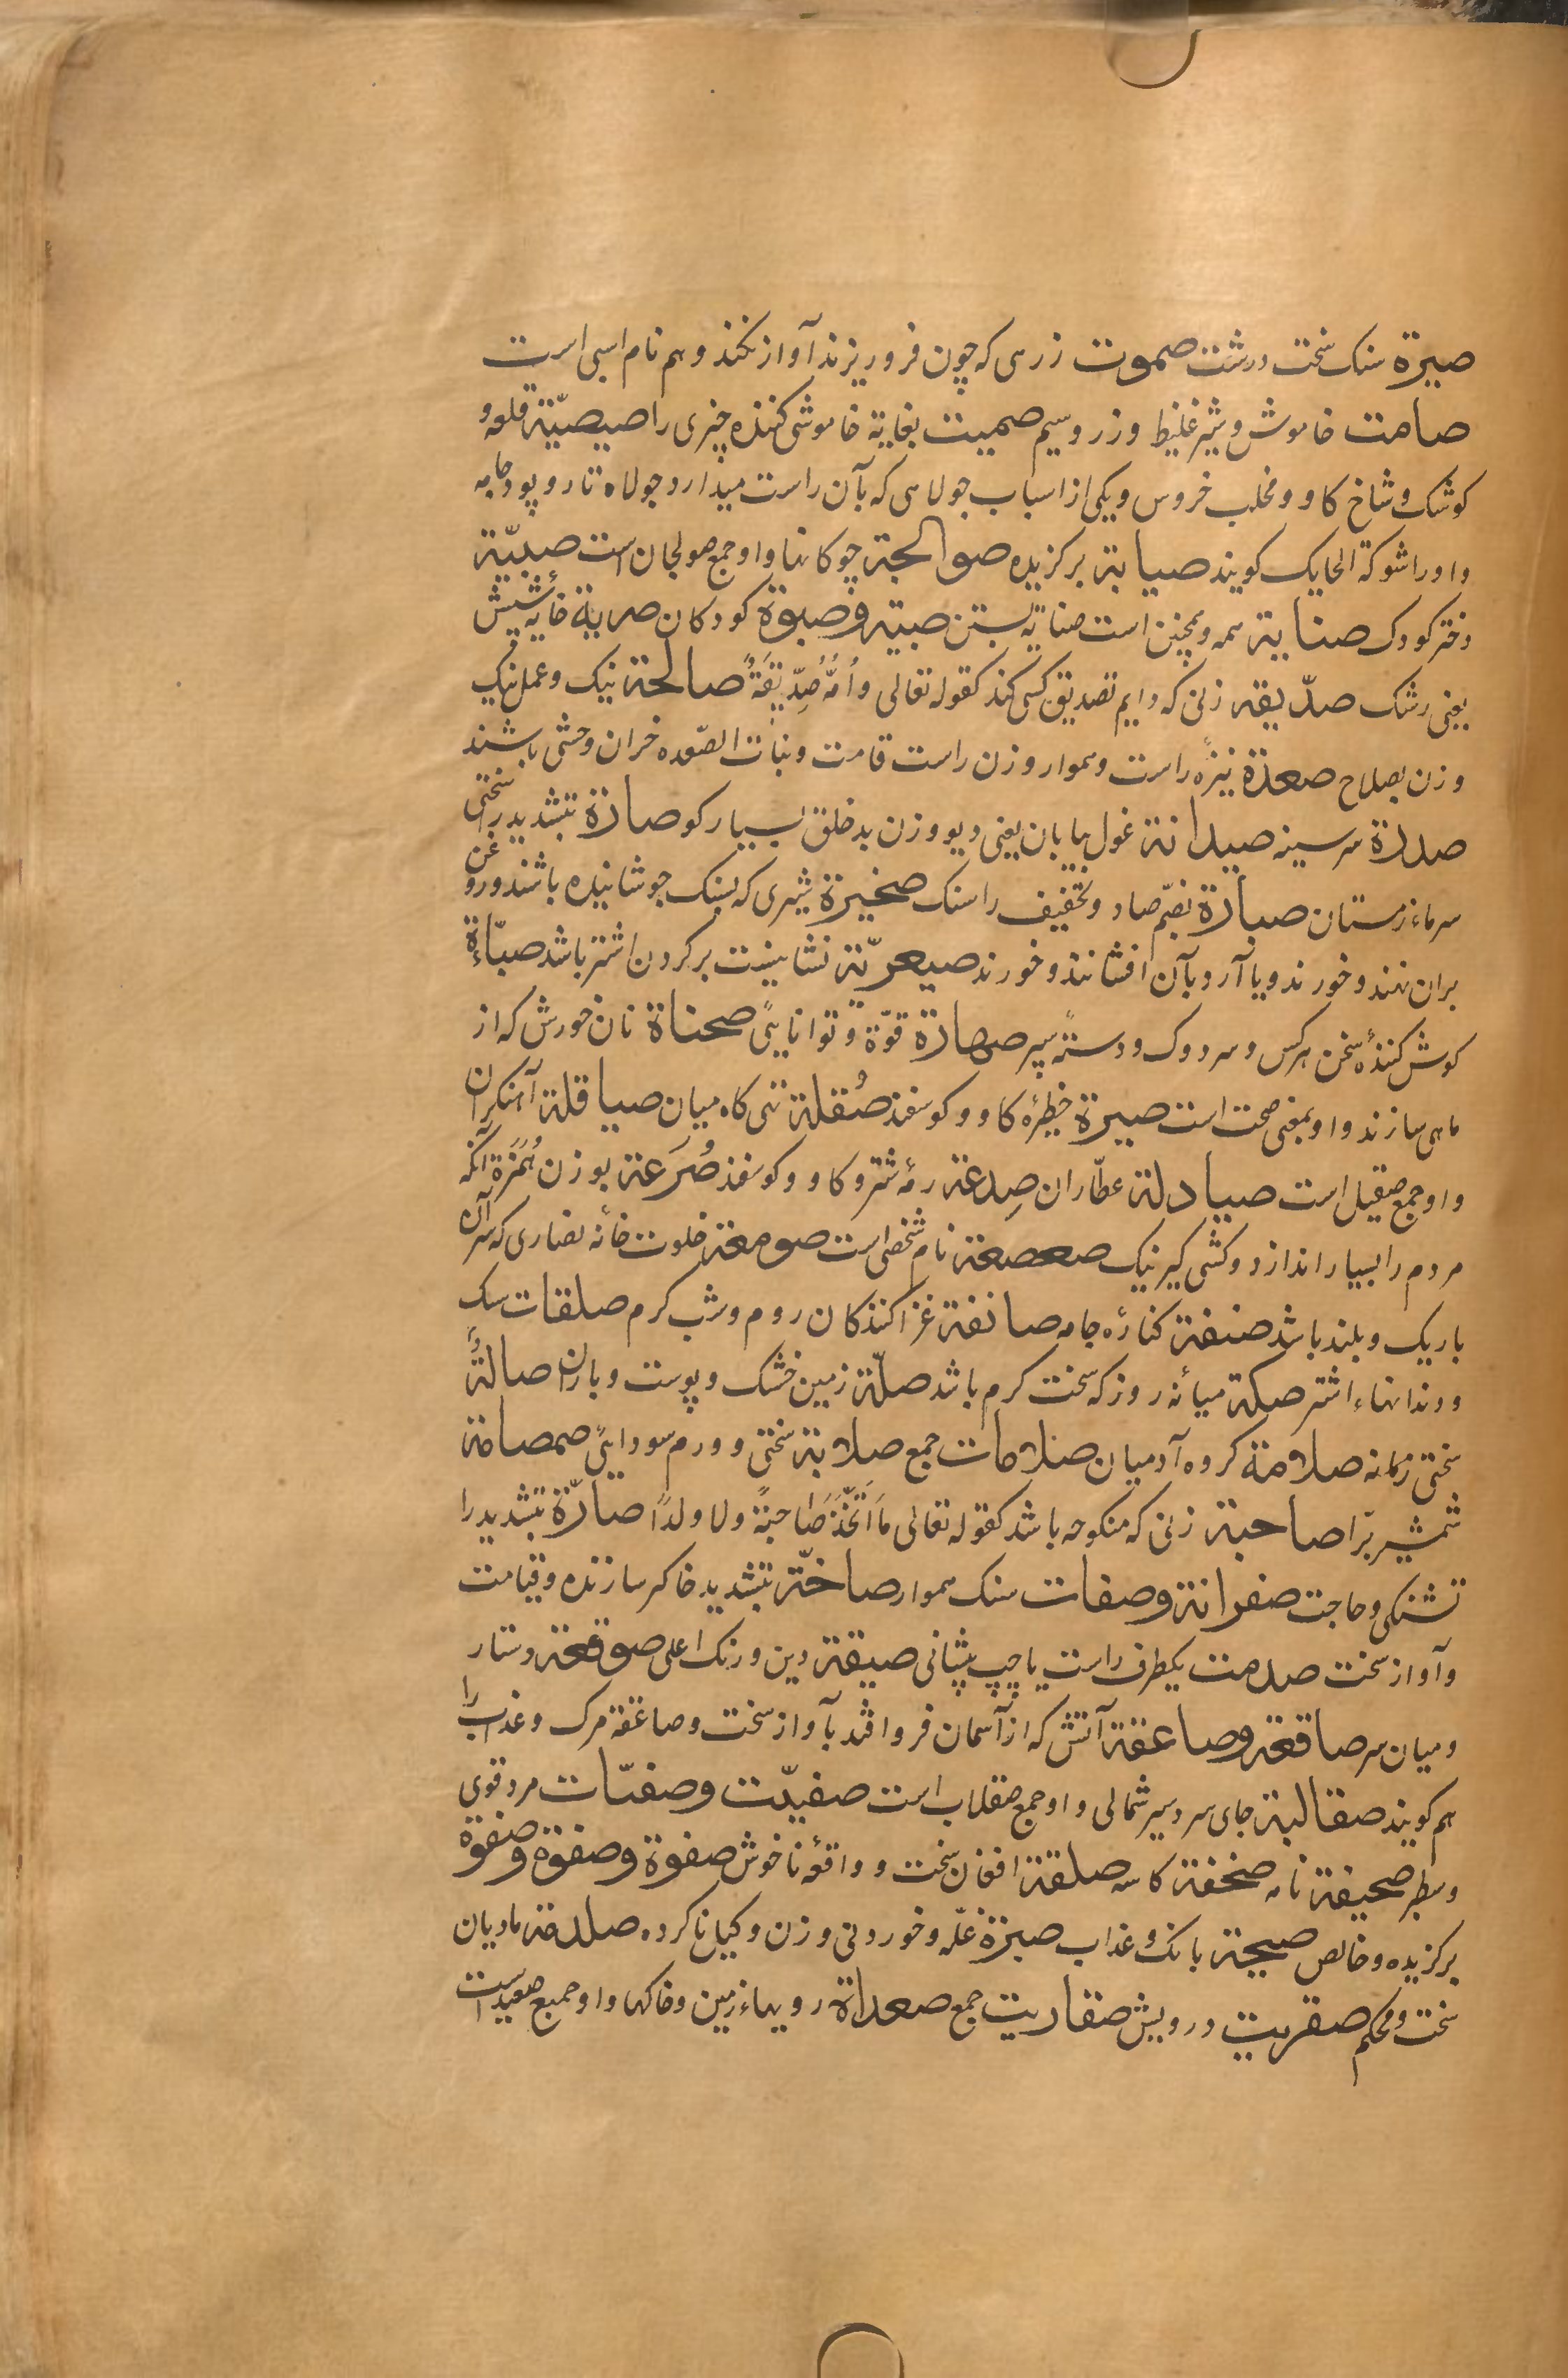 صبرة سنک سخت درشت صموت زرهی که چون فرو ریزند آواز نکند و هم نام اسبی است
صامت خاموش و شیر غلیظ و زر و سیم صمیت بغایة خاموشی کننده چیزی را صیصیّة قلعه و
کوشک و شاخ کاو و مخلب خروس و یکی از اسباب جولاهی که بآن راست میدارد جولاه تار و پود جامه
و او را شوکة الحایک کویند صیابة برکزیده صوالجة چوکانها و او جمع صولجان است صبیّة
دختر کودک صنابة همه و همچنین است صنایة بستن صبیة و صبوة کودکان صریة خایه شپش
یعنی رشک صدّیقة زنی که دایم تصدیق کسی کند کقوله تعالی و اُمّه صِدّیقَةٌ صالحة نیک و عمل نیک
و زن بصلاح صعدة نیزهٔ راست و هموار و زن راست قامت و بنات الصّعده خران وحشی باشند
صدرة سر سینه صیدانة غول بیابان یعنی دیو و زن بد خلق بسیار کو صبارّة بتشدید را سختی
سرماء زمستان صبارة بضمّ صاد و تخفیف را سنک صخیرة شیری که بسنک جوشانیده باشند و روغن
بران نهند و خورند و یا آرد بآن افشانند و خورند صیعریّة نشانیست بر کردن اشتر باشد صبّاءة
کوش کنندهٔ سخن هر کس و سردوک و دستهٔ سپر صهارة قوّة و توانایئ صحناة نان خورش که از
ماهی سازند و او بمعنی صحت است صیرة خطیرهٔ کاو و کوسفند صُقلة تنی کاه میان صیاقلة آهنکران
و او جمع صقیل است صیادلة عطّاران صِدعة رمهٔ شتر و کاو و کوسفند صُرَعة بوزن هُمَزة آنکه
مردم را بسیار اندازد و کشتی کیر نیک صعصعة نام شخصی است صومعة خلوت خانهٔ نصاری که سر آن
باریک و بلند باشد صنفة کنارهٔ جامه صائفة غزا کنندکان روم و شب کرم صلقات سک
و دندانهاء اشتر صکة میانهٔ روز که سخت کرم باشد صلّة زمین خشک و پوست و باران صالّةٌ
سختی زمانه صلامة کروه آدمیان صلامات جمع صلابة سختی و ورم سودایئ صمصامة
شمشیر برّا صاحبة زنی که منکوحه باشد کقوله تعالی مَا اتَّخَذَ صَاحِبَةً ولا ولدًا صارّة بتشدید را
تشنکی و حاجت صفوانة و صفات سنک هموار صاخّة بتشدید خا کر سازنده و قیامت
و آواز سخت صدمت یکطرف راست یا چپ پیشانی صبغة دین و رنک اعلی صوقعة دستار
و میان سر صاقعة و صاعقة آتش که از آسمان فرو افتد بآواز سخت و صاعقة مرک و عذاب را
هم کویند صقالبة جای سردسیر شمالی و او جمع صقلاب است صفیّت و صفتّات مرد قوی
و سطبر صحیفة نامه صحفة کاسه صلقة افغان سخت و واقعهٔ ناخوش صفوة و صفوة و صفوة
برکزیده و خالص صیحة بانک و عذاب صبرة غلّه و خوردنی وزن و کیل ناکرده صلدمة مادیان
سخت و محکم صقریت درویش صقاریت جمع صعداة رویهاء زمین و خاکها و او جمیع صعید است